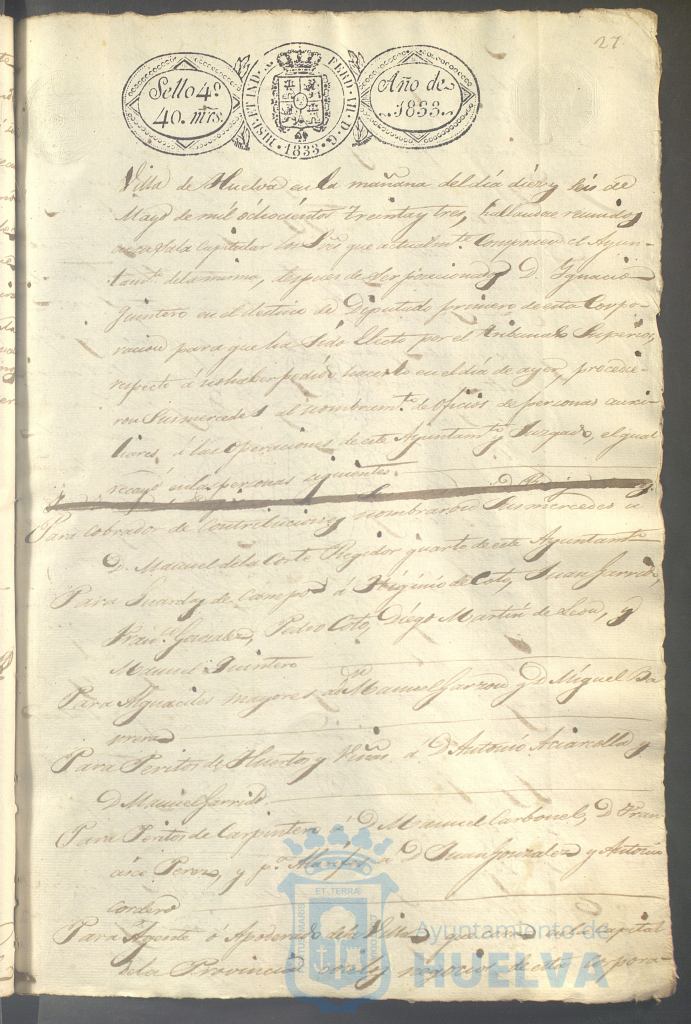 27
Sello 4º
40. mrs.
HISP. ET IND. R. FERD. VII. D. G.
1833.
Año de
1833.
Villa de Huelva en la mañana del día diez y seis de
Mayo de mil ochocientos treinta y tres, hallandose reunidos
en su Sala Capitular los Sres que actualmte. componen el Ayun-
tamto. de la misma, despues de ser posecionado D. Ignacio
Quintero en el destino de Diputado primero de esta Corpo-
racion para que ha sido electo por el tribunal Superior,
respecto á no haber podido hacerlo en el día de ayer, procedie-
ron Sus mercedes al nombramto. de oficios de personas auxi-
liares, á las operaciones de este Ayuntamto. y Juzgado, el qual
recayó en las personas siguientes.
Para Cobrador de Contribuciones nombraron Sus mercedes a
D. Manuel de la Corte Regidor quarto de este Ayuntamto.
Para Guardas de Campo á Higinio de Coto, Juan Garrido,
Franco. Gonzalez, Pedro Coto, Diego Martin de Leon, y
Manuel Quintero
Para Alguaciles mayores á Dn. Manuel Garzon y D. Miguel Ba
rrera
Para Peritos de Huertas y Viñas á D. Antonio y
D. Manuel Garrido
Para Peritos de Carpintero á D. Manuel Carbonel, D. Fran-
cisco Perez, y pa. Alarifes a D. Juan Gonzalez y Antonio
Cordero
Para Agente ó Apoderado de la Villa en la Capital
de la Provincia negocios de esta Corpora-
ET TERRAE
Ayuntamiento de
HUELVA